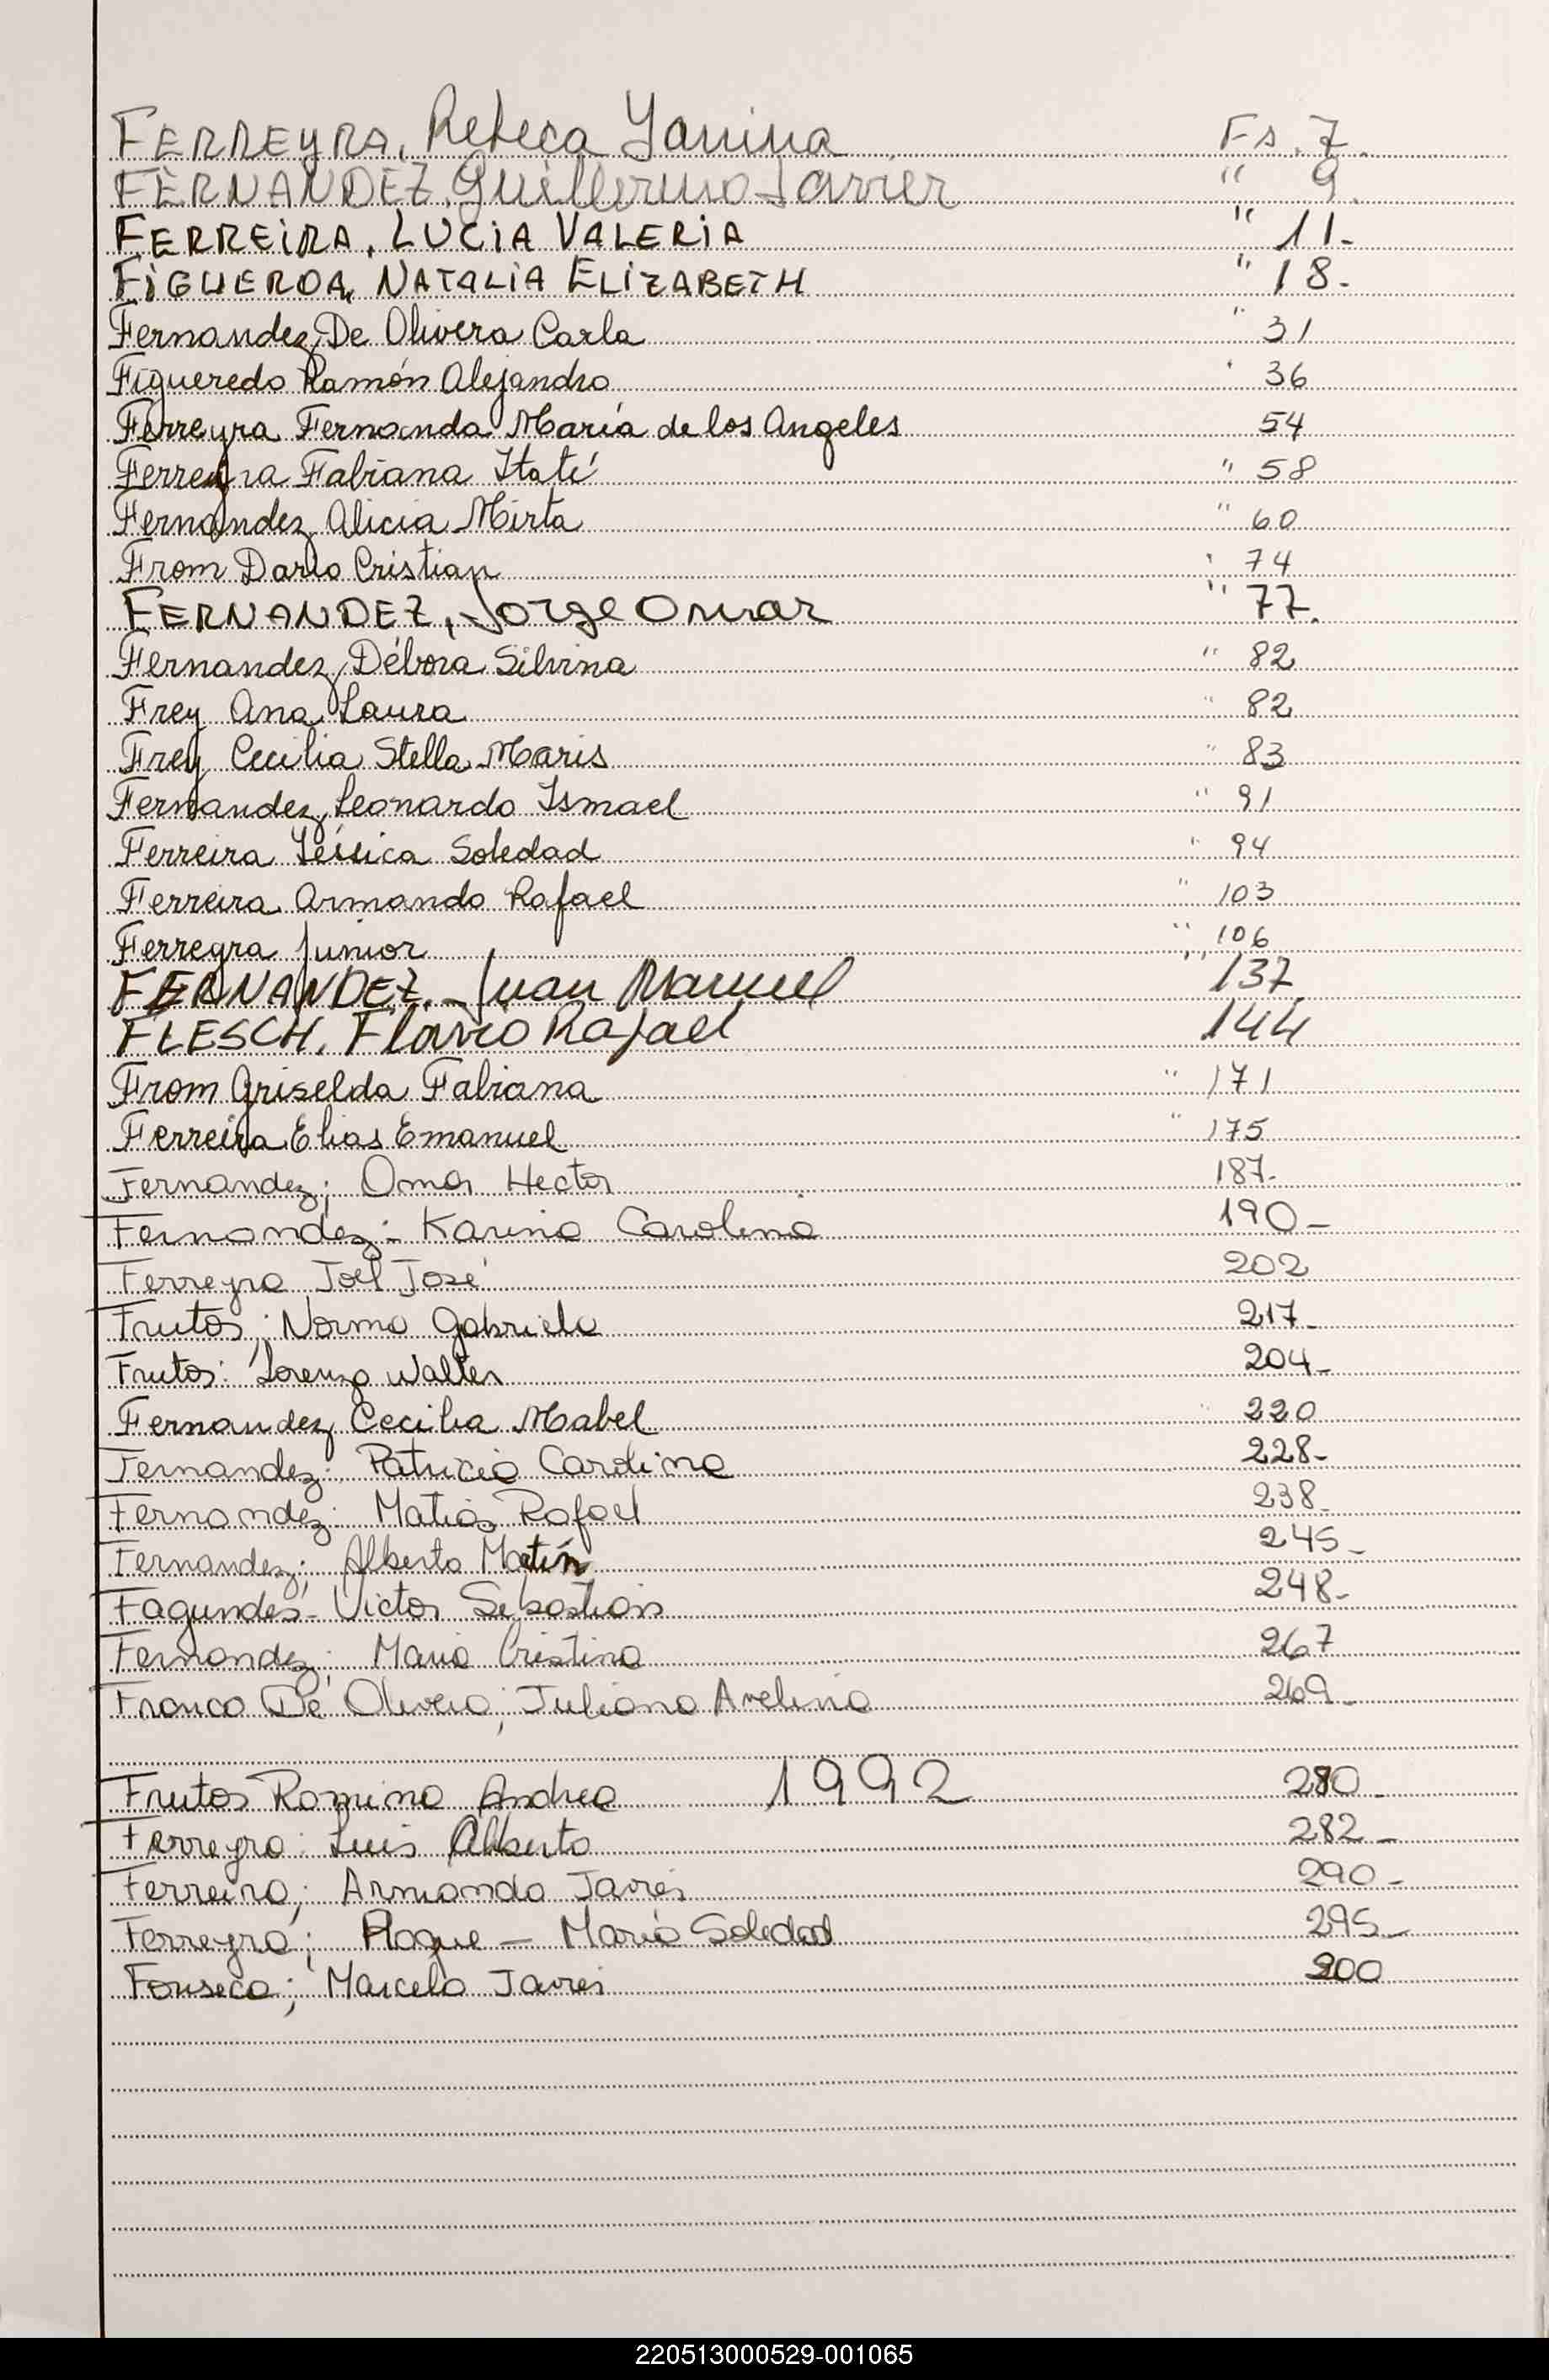 FERREYRA, Rebeca Yanina Fs. 7.
FERNANDEZ, Guillermo Javier " 9.
FERREIRA, LUCIA VALERIA " 11-
FIGUEROA, NATALIA ELIZABETH " 18-
Fernandez De Olivera Carla " 31
Figueredo Ramón Alejandro " 36
Ferreyra Fernanda María de los Angeles 54
Ferreyra Fabiana Itatí " 58
Fernandez Alicia Mirta " 60
From Dario Cristian " 74
FERNANDEZ, Jorge Omar " 77.
Fernandez Débora Silvina " 82
Frey Ana Laura " 82
Frey Cecilia Stella Maris " 83
Fernandez Leonardo Ismael " 91
Ferreira Yéssica Soledad " 94
Ferreira Armando Rafael " 103
Ferreyra Junior " 106
FERNANDEZ, Juan Manuel " 137
FLESCH, Flavio Rafael 144
From Griselda Fabiana " 171
Ferreira Elias Emanuel " 175
Fernandez; Omar Hector 187-
Fernandez:- Karina Carolina 190-
Ferreyra Joel José 202
Frutos; Norma Gabriela 217-
Frutos: Lorenzo Walter 204-
Fernandez Cecilia Mabel 220
Fernandez: Patricia Carolina 228-
Fernandez: Matias Rafael 238-
Fernandez; Alberto Martín 245-
Fagundes- Victor Sebastián 248-
Fernandez; Maria Cristina 267
Franco De Olivera; Juliana Avelina 269-
Frutos Romina Andrea 1992 280-
Ferreyra: Luis Alberto 282-
Ferreira; Armando Javier 290-
Ferreyra; Roque - Maria Soledad 295-
Fonseca; Marcelo Javier 200
220513000529-001065